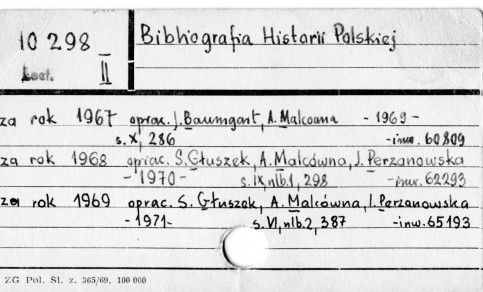 10 298
II
Bibliografia Historii Polskiej
za rok 1967 oprac. J. Baumgart, A. Malcówna - 1969 -
s. X, 286 -inw. 60809
za rok 1968 oprac. S. Głuszek, A. Malcówna, J. Perzanowska
- 1970 - s. IX, nlb. 1, 298 -inw. 62293
za rok 1969 oprac. S. Głuszek, A. Malcówna, J. Perzanowska
- 1971 - s. VI, nlb. 2, 387 -inw. 65193
ZG Pol. Śl. z. 365/69. 100 000